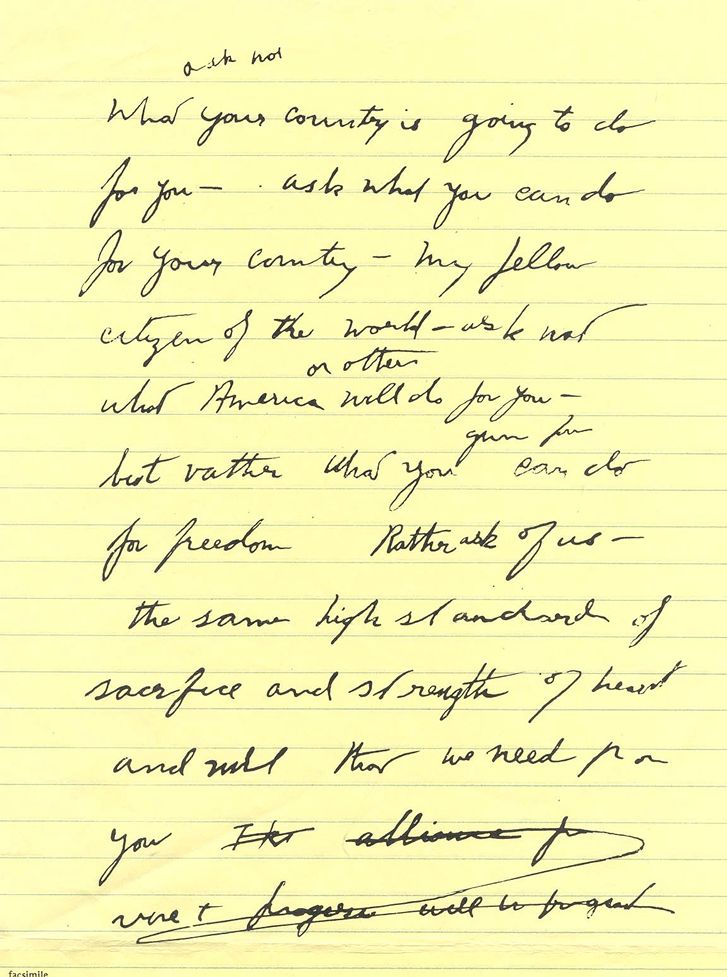 ask not
what your country is going to do
for you — ask what you can do
for your country — My fellow
citizen of the world — ask not
or others
what America will do for you —
but rather what you can do
for freedom Rather ask of us —
the same high standards of
sacrifice and strength of heart
and will that we need from
you
will be
facsimile